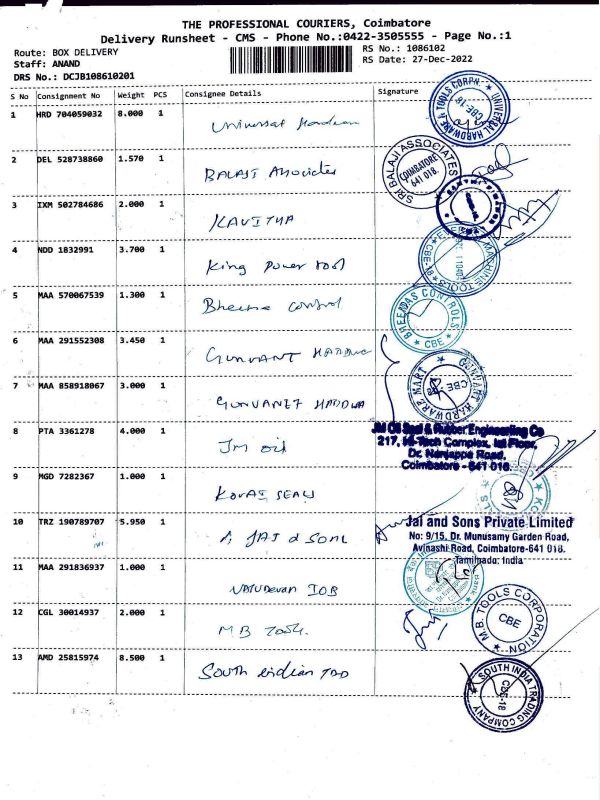 THE PROFESSIONAL COURIERS, Coimbatore
Delivery Runsheet - CMS - Phone No.:0422-3505555 - Page No.:1
Route: BOX DELIVERY
RS No.: 1086102
Staff: ANAND
RS Date: 27-Dec-2022
DRS No.: DCJB108610201
S No Consignment No Weight PCS Consignee Details Signature
1 HRD 704059032 8.000 1 Universal UNIVERSAL HARDWARE & TOOLS CORPN. CBE-18
2 DEL 528738860 1.570 1 BALAJI Associates SRI BALAJI ASSOCIATES COIMBATORE 641 018.
3 IXM 502784686 2.000 1 KAVITHA
4 NDD 1832991 3.700 1 King Power tool MACHINE TOOLS
5 MAA 570067539 1.300 1 Bheema control BHEEMAS CONTROLS CBE
6 MAA 291552308 3.450 1 GUNVANT
7 MAA 858918067 3.000 1 GUNVANET HARDWARE MART CBE
8 PTA 3361278 4.000 1 JM oil JM Oil Seal & Rubber Engineering Co
217, Hi-Tech Complex, Ist Floor,
Dr. Nanjappa Road,
Coimbatore - 641 018.
9 MGD 7282367 1.000 1 KOVAI SEALS
10 TRZ 190789707 5.950 1 JAI & SONS Jai and Sons Private Limited
No: 9/15, Dr. Munusamy Garden Road,
Avinashi Road, Coimbatore-641 018.
Tamilnadu. India
11 MAA 291836937 1.000 1 IOB
12 CGL 30014937 2.000 1 M B Tools. M.B. TOOLS CORPORATION CBE
13 AMD 25815974 8.500 1 South indian SOUTH INDIA TRADING COMPANY CBE-18